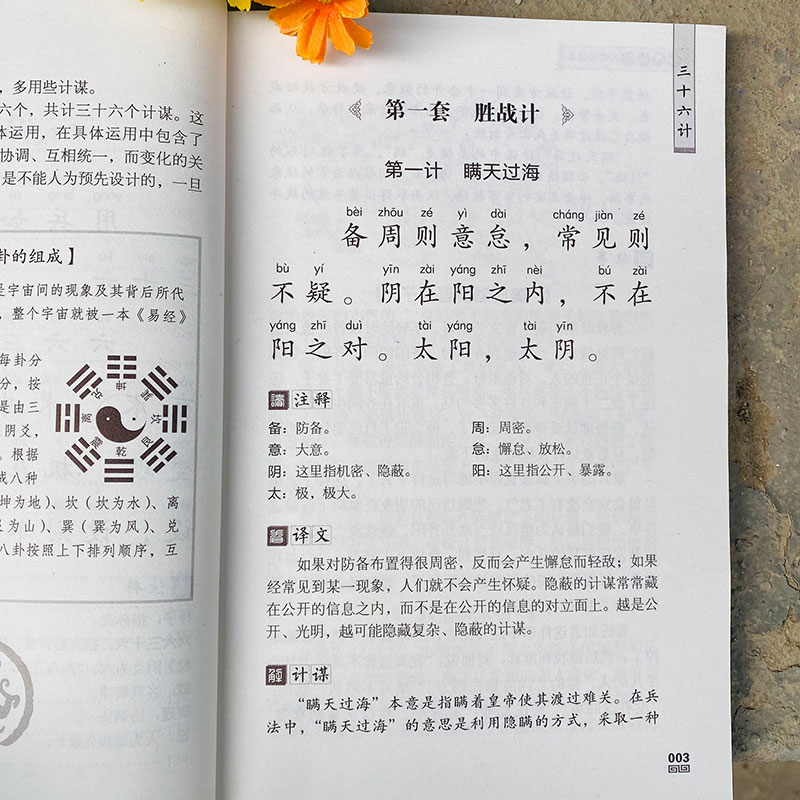 ，多用些计谋。
六个，共计三十六个计谋。这
体运用，在具体运用中包含了
协调、互相统一，而变化的关
是不能人为预先设计的，一旦
卦的组成】
是宇宙间的现象及其背后所代
，整个宇宙就被一本《易经》
每卦分
分，按
是由三
阴爻，
。根据
成八种
坤为地）、坎（坎为水）、离
艮为山）、巽（巽为风）、兑
八卦按照上下排列顺序，互
坤
兑
艮
离
坎
震
乾
三十六计
第一套 胜战计
第一计 瞒天过海
bèi zhōu zé yì dài cháng jiàn zé
备周则意怠，常见则
bù yí yīn zài yáng zhī nèi bú zài
不疑。阴在阳之内，不在
yáng zhī duì tài yáng tài yīn
阳之对。太阳，太阴。
注释
备：防备。 周：周密。
意：大意。 怠：懈怠、放松。
阴：这里指机密、隐蔽。 阳：这里指公开、暴露。
太：极，极大。
译文
如果对防备布置得很周密，反而会产生懈怠而轻敌；如果
经常见到某一现象，人们就不会产生怀疑。隐蔽的计谋常常藏
在公开的信息之内，而不是在公开的信息的对立面上。越是公
开、光明，越可能隐藏复杂、隐蔽的计谋。
解 计谋
“瞒天过海”本意是指瞒着皇帝使其渡过难关。在兵
法中，“瞒天过海”的意思是利用隐瞒的方式，采取一种
003